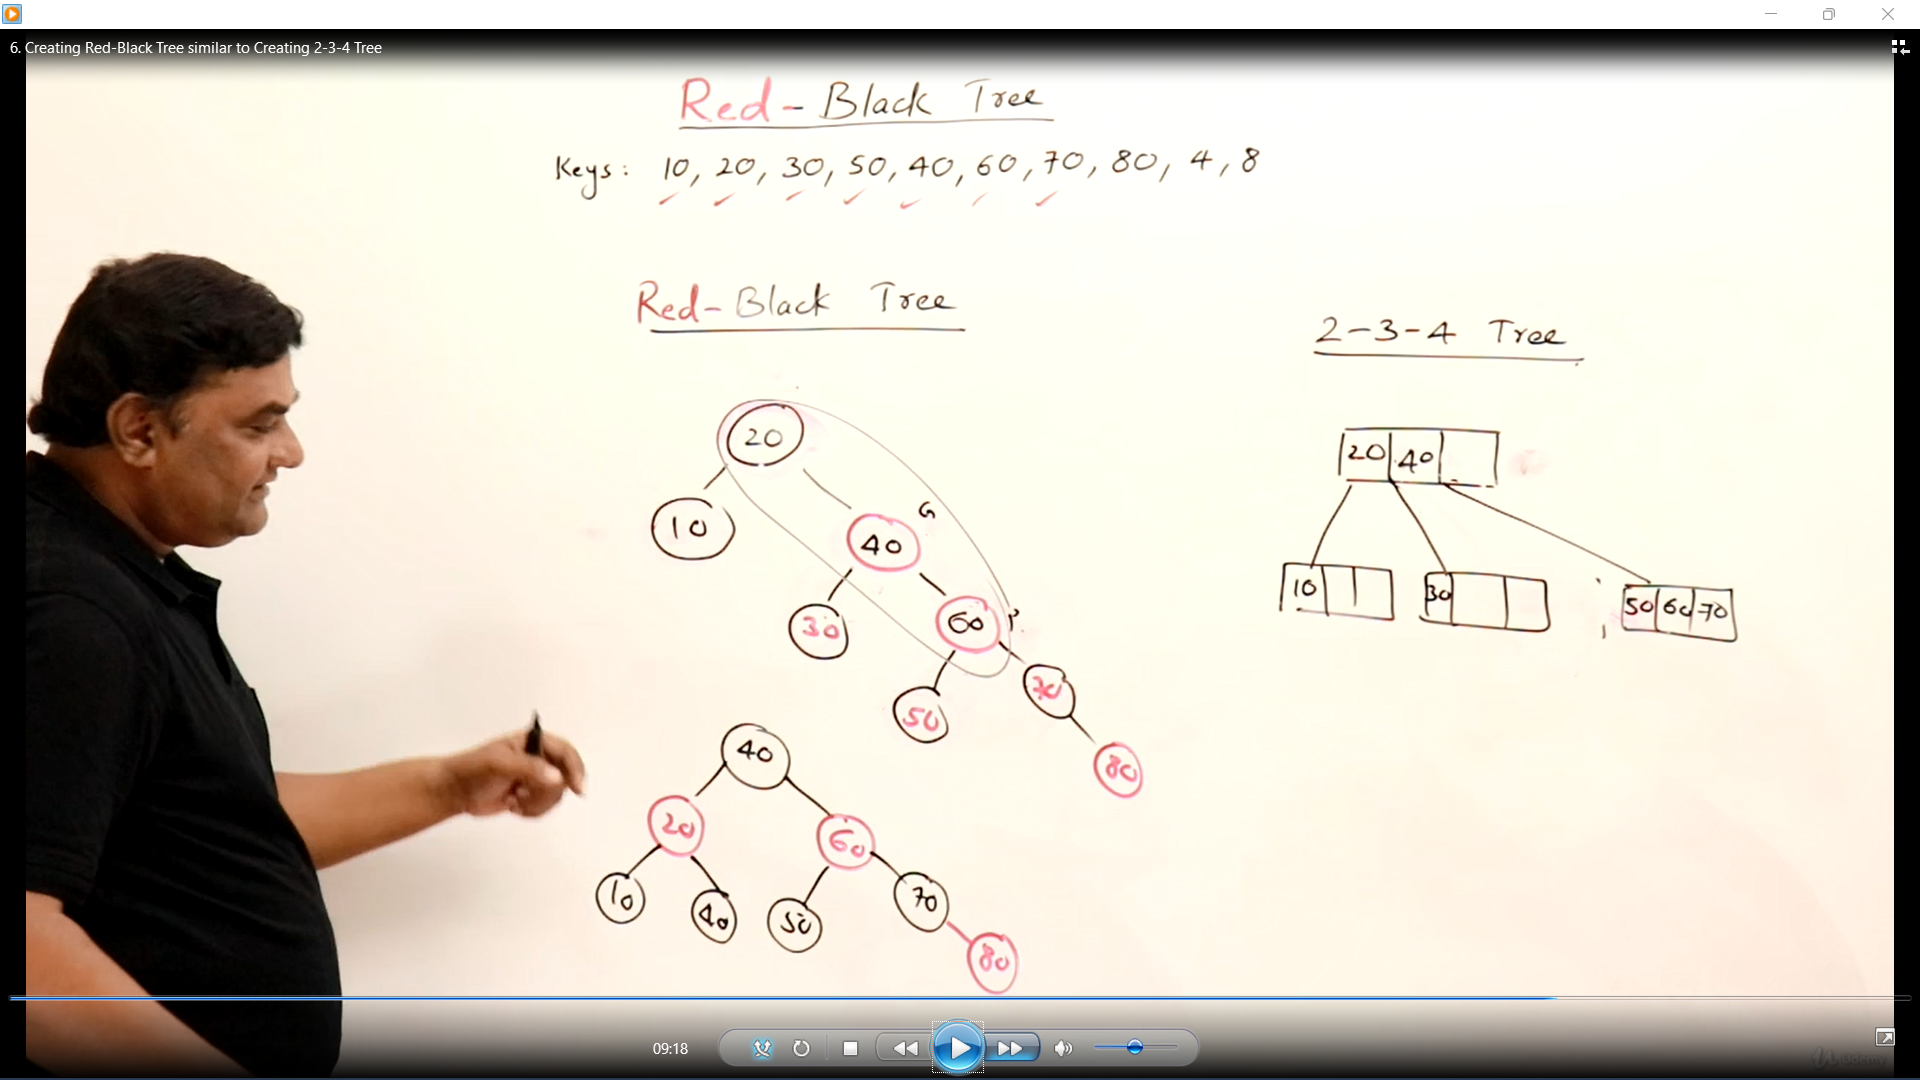 6. Creating Red-Black Tree similar to Creating 2-3-4 Tree
Red - Black Tree
Keys: 10, 20, 30, 50, 40, 60, 70, 80, 4, 8
Red - Black Tree
2-3-4 Tree
20
10
40 G
30
60 P
50
70
80
20 40
10
30
50 60 70
40
20 60
10 40 50 70
80
09:18
udemy